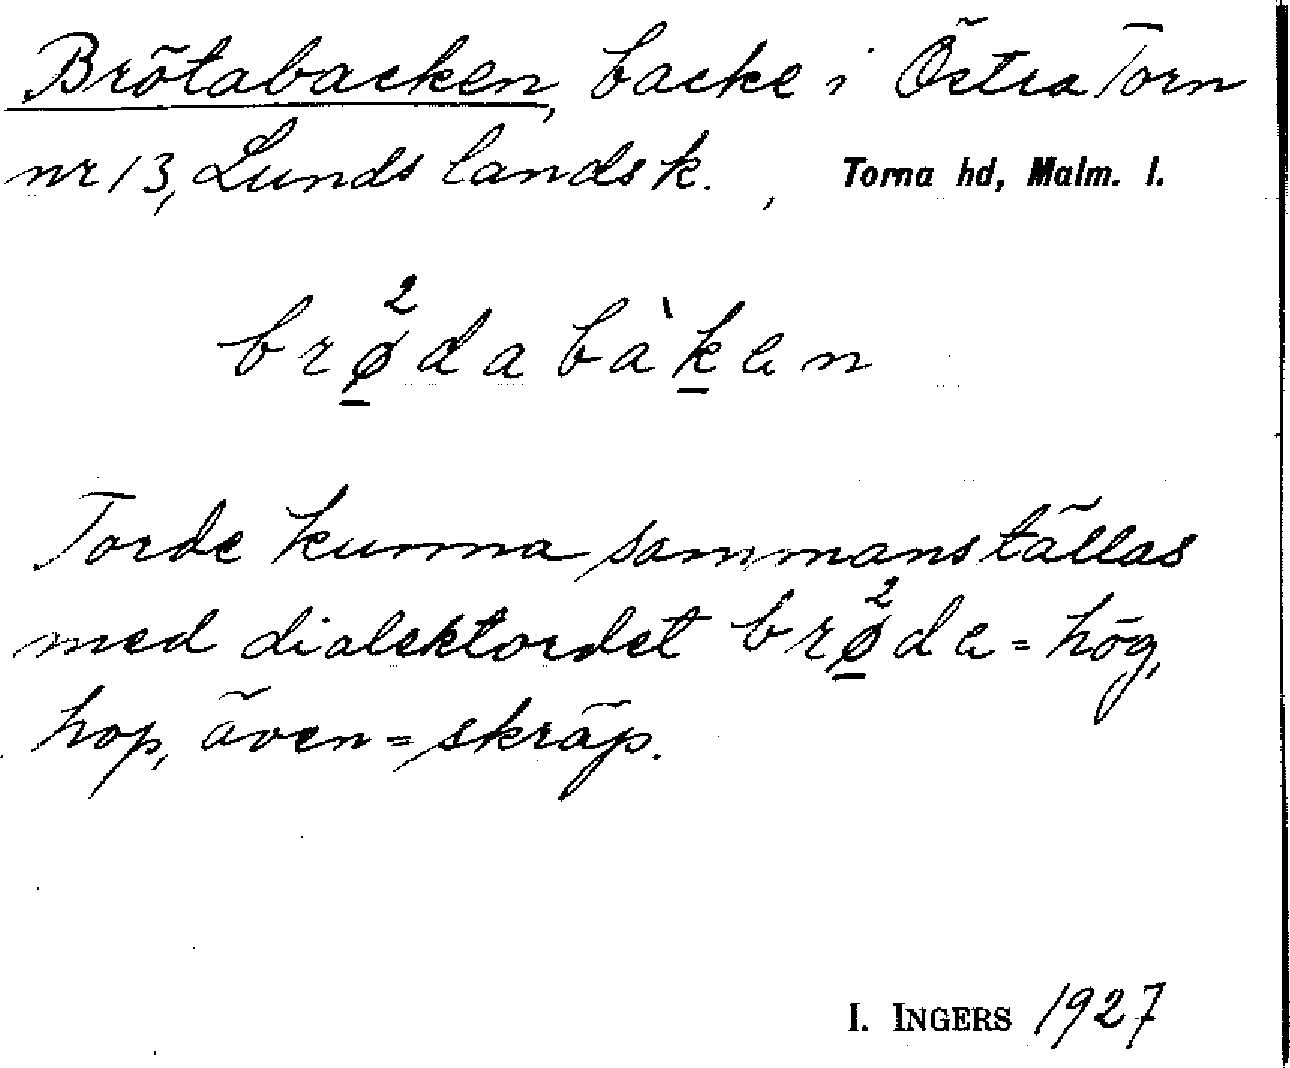 Brötabacken, backe i Östra Torn
nr 13, Lunds landsk., Torna hd, Malm. l.
brø̱²dabàḵen
Torde kunna sammanställas
med dialektordet brø̱²de = hög,
hop, även = skräp.
I. INGERS 1927